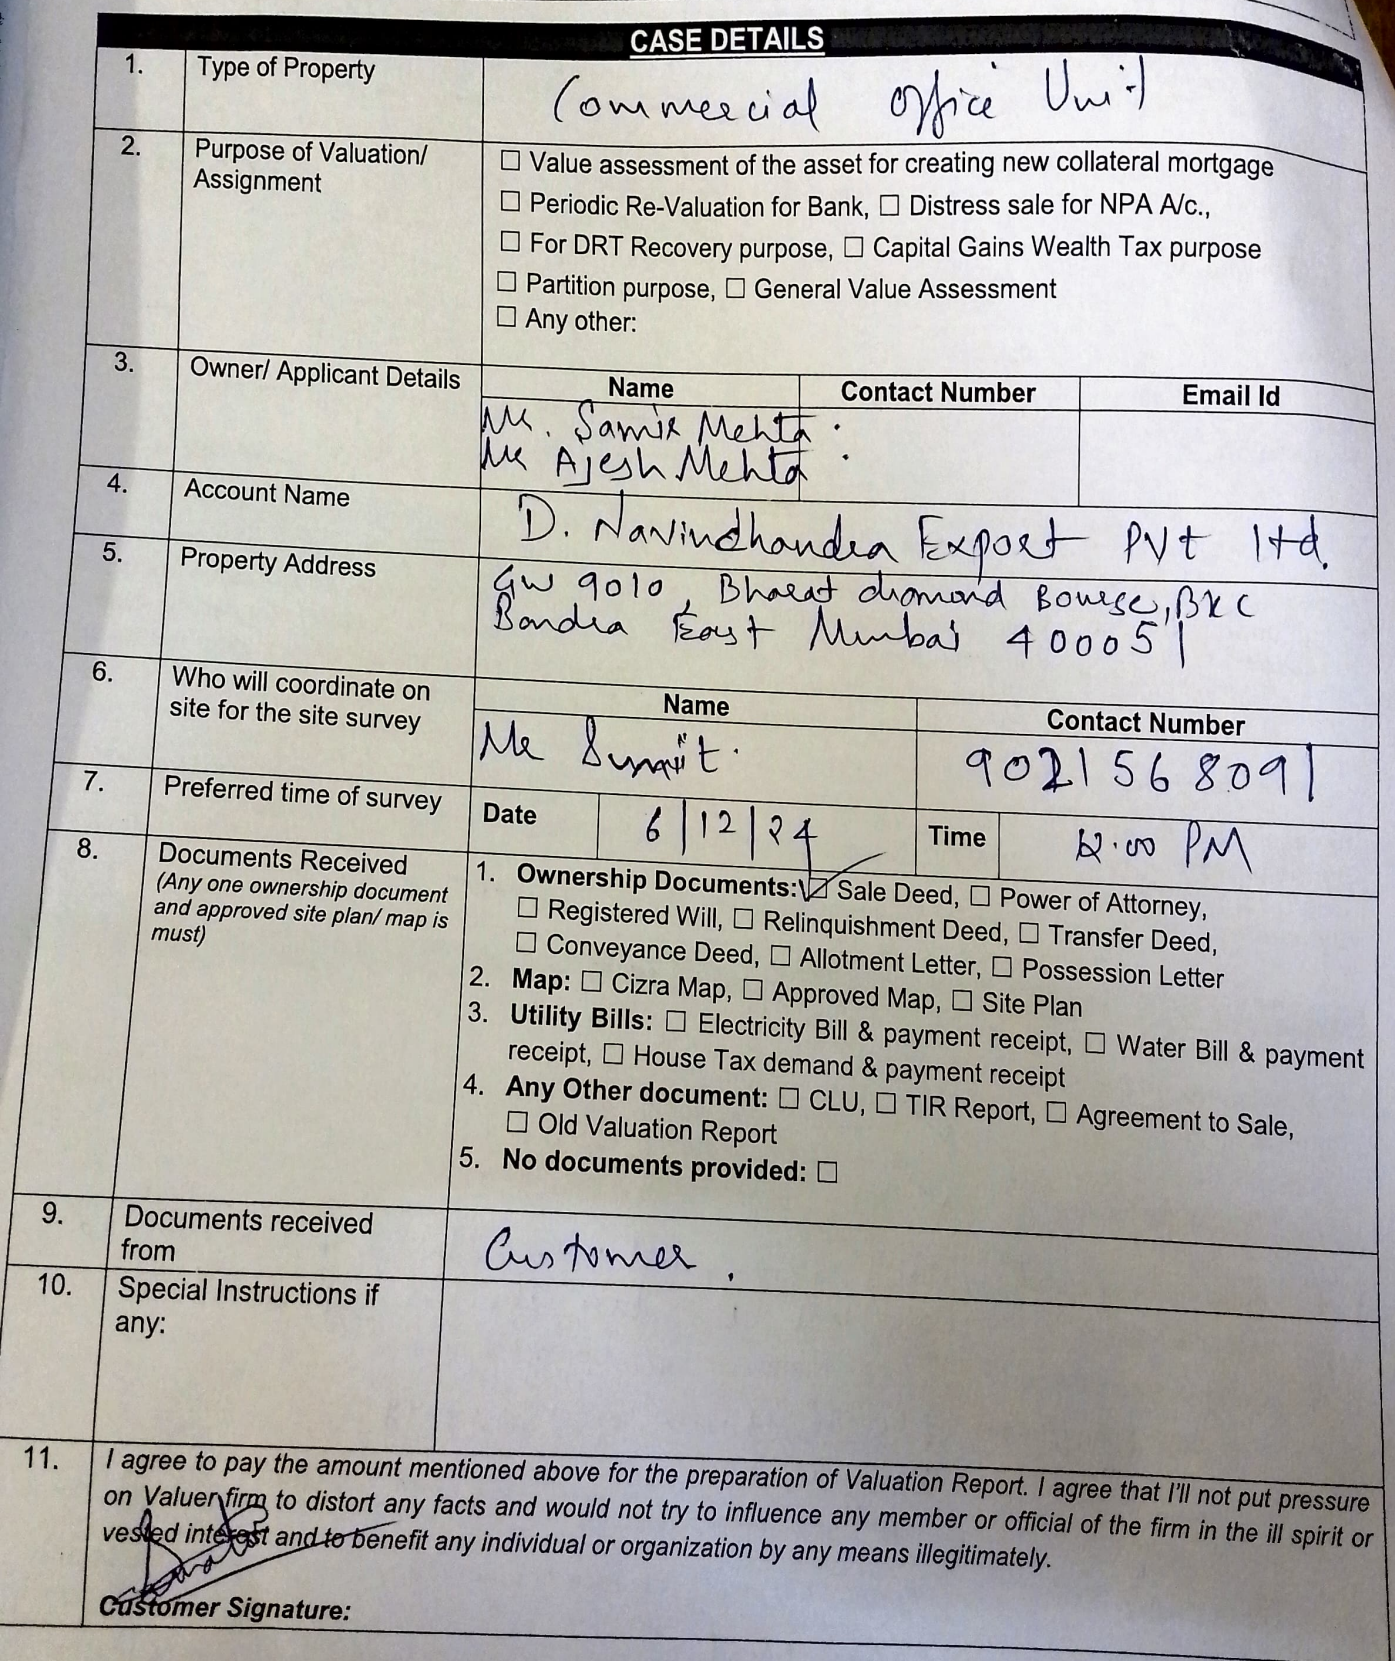 CASE DETAILS
1. Type of Property Commercial office Unit
2. Purpose of Valuation/ Assignment
☐ Value assessment of the asset for creating new collateral mortgage
☐ Periodic Re-Valuation for Bank, ☐ Distress sale for NPA A/c.,
☐ For DRT Recovery purpose, ☐ Capital Gains Wealth Tax purpose
☐ Partition purpose, ☐ General Value Assessment
☐ Any other:
3. Owner/ Applicant Details Name Contact Number Email Id
Mr. Samir Mehta
Mr Ajesh Mehta
4. Account Name D. Navindhandra Export Pvt ltd.
5. Property Address GW 9010, Bharat diamond Bourse, BKC
Bandra East Mumbai 400051
6. Who will coordinate on Name Contact Number
site for the site survey Mr 9021568091
7. Preferred time of survey Date 6/12/24 Time 12.00 PM
8. Documents Received
(Any one ownership document
and approved site plan/ map is
must)
1. Ownership Documents: ☑ Sale Deed, ☐ Power of Attorney,
☐ Registered Will, ☐ Relinquishment Deed, ☐ Transfer Deed,
☐ Conveyance Deed, ☐ Allotment Letter, ☐ Possession Letter
2. Map: ☐ Cizra Map, ☐ Approved Map, ☐ Site Plan
3. Utility Bills: ☐ Electricity Bill & payment receipt, ☐ Water Bill & payment
receipt, ☐ House Tax demand & payment receipt
4. Any Other document: ☐ CLU, ☐ TIR Report, ☐ Agreement to Sale,
☐ Old Valuation Report
5. No documents provided: ☐
9. Documents received
from Customer.
10. Special Instructions if
any:
11. I agree to pay the amount mentioned above for the preparation of Valuation Report. I agree that I'll not put pressure
on Valuer firm to distort any facts and would not try to influence any member or official of the firm in the ill spirit or
vested interest and to benefit any individual or organization by any means illegitimately.
Customer Signature: